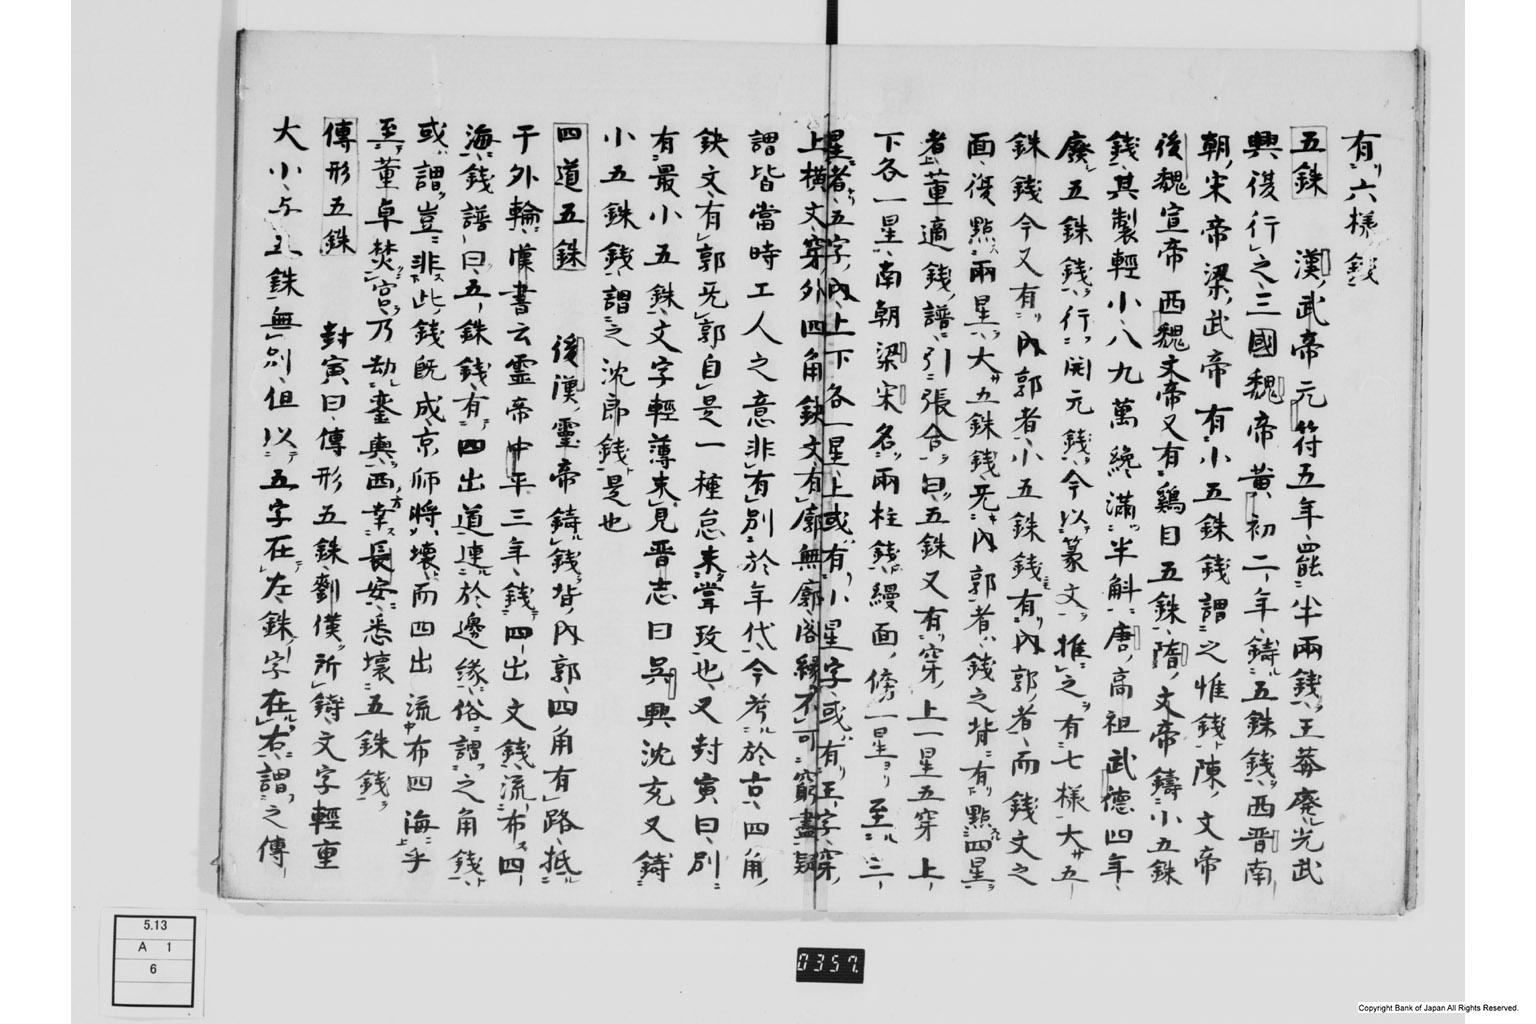 有六樣錢
五銖 漢武帝元符五年罷半兩錢王莽廢光武
興復行之三國魏帝黄初二年鑄五銖錢西晋南
朝宋帝梁武帝有小五銖錢謂之惟錢陳文帝
後魏宣帝西魏文帝又有鷄目五銖隋文帝鑄小五銖
錢其製輕小八九萬纔滿半斛唐高祖武德四年
廢五銖錢行開元錢今以篆文推之有七樣大五
銖錢今又有內郭者小五銖錢有內郭者而錢文之
面復點兩星大五銖錢旡內郭者錢之背有點四星
者董逌錢譜引張台曰五銖又有穿上一星五穿上
下各一星南朝梁宋名兩柱錢縵面傍一星至三
星者五字內上下各一星上或有小星字或有王字穿
上横文穿外四角鈌文有廓無廓濶縁不可窮盡疑
謂皆當時工人之意非有別於年代今考於古四角
鈌文有郭旡郭自是一種怠未甞攷也又封寅曰別
有最小五銖文字輕薄未見晋志曰呉興沈充又鑄
小五銖錢謂之沈郎錢是也
四道五銖 後漢靈帝鑄錢背內郭四角有路抵
于外輪漢書云霊帝中平三年錢四出文錢流布四
海錢譜曰五銖錢有四出道連於邊緣俗謂之角錢
或謂豈非此錢既成京師將壞而四出流布四海乎
至董卓焚宮乃劫鑾輿西幸長安悉壞五銖錢
傳形五銖 封寅曰傳形五銖劉僕所鑄文字輕重
大小与五銖無別但以五字在左銖字在右謂之傳
5.13
A 1
6
0357.
Copyright Bank of Japan All Rights Reserved.